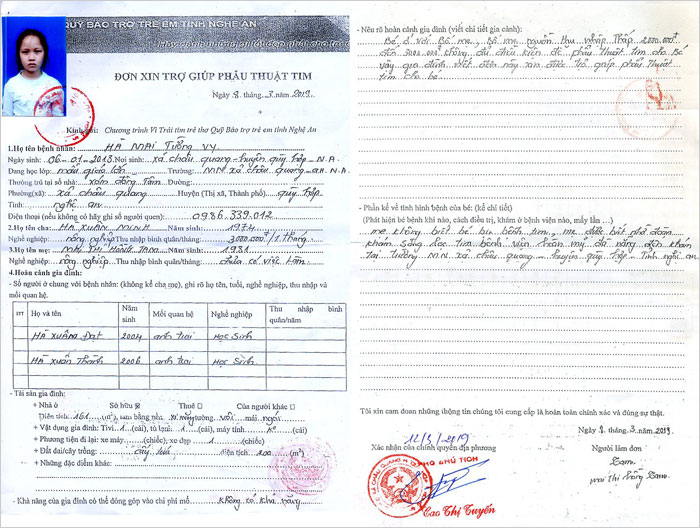 QUỸ BẢO TRỢ TRẺ EM TỈNH NGHỆ AN
ĐƠN XIN TRỢ GIÚP PHẪU THUẬT TIM
Ngày 8. tháng. 3 năm. 2019.
Kính gửi: Chương trình Vì Trái tim trẻ thơ Quỹ Bảo trợ trẻ em tỉnh Nghệ An
1.Họ tên bệnh nhân: HÀ MAI TƯỜNG VY
Ngày sinh: 06-01-2013 Nơi sinh: xã châu quang-huyện quỳ hợp-N.A.
Đang học lớp: mẫu giáo lớn Trường: MN xã châu quang-QH.NA.
Thường trú tại số nhà: xóm đồng Tâm Đường:
Phường(xã): xã châu quang Huyện (Thị xã, Thành phố): quỳ hợp.
Tỉnh: nghệ an
Điện thoại (nếu không có hãy ghi số người quen): 0986.339.012
2.Họ tên cha: HÀ XUÂN MINH Năm sinh: 1974
Nghề nghiệp: nông nghiệp Thu nhập bình quân/tháng: 3.000.000đ/1 tháng
3.Họ tên mẹ: MAI THỊ HỒNG TAM Năm sinh: 1981
Nghề nghiệp: nông nghiệp Thu nhập bình quân/tháng: chưa có việc làm
4.Hoàn cảnh gia đình:
- Số người ở chung với bệnh nhân: (không kể cha mẹ), ghi rõ họ tên, tuổi, nghề nghiệp, thu nhập và
mối quan hệ.
STT Họ và tên Năm sinh Mối quan hệ Nghề nghiệp Thu nhập bình quân/năm
HÀ XUÂN Đạt 2004 anh trai Học Sinh
HÀ XUÂN Thành 2006 anh trai Học Sinh.
- Tài sản gia đình:
+ Nhà ở Sở hữu Thuê Của người khác
Diện tích: 161 (m²), làm bằng: xi măng tường với mái ngói
+ Vật dụng gia đình: Tivi. 1 (cái), tủ lạnh: 1 (cái), máy tính (cái)
+ Phương tiện đi lại: xe máy (chiếc), xe đạp 1 (chiếc)
+ Đất đai/cây trồng: cây lúa diện tích: 200 (m²)
+ Những đặc điểm khác:
- Khả năng của gia đình có thể đóng góp vào chi phí mổ. không có khả năng
- Nêu rõ hoàn cảnh gia đình (viết chi tiết gia cảnh):
Bé ở với Bố mẹ, bố mẹ nguồn thu nhập thấp 2.000.000đ
đến 3000.000đ không đủ điều kiện để phẫu thuật tim cho Bé
vậy gia đình viết đơn này xin được trợ giúp phẫu thuật
tim cho bé.
- Phần kể về tình hình bệnh của bé: (kể chi tiết)
(Phát hiện bé bệnh khi nào, cách điều trị, khám ở bệnh viện nào, mấy lần ...)
mẹ không biết bé bị bệnh tim, mẹ được biết nhờ đoàn
khám sàng lọc của bệnh viện hoàn mỹ đà nẵng đến khám
tại trường MN xã châu quang - huyện quỳ hợp - tỉnh nghệ an.
Tôi xin cam đoan những thông tin chúng tôi cung cấp là hoàn toàn chính xác và đúng sự thật.
12/3/2019
Ngày 8. tháng. 3. năm. 2019.
Xác nhận của chính quyền địa phương
Người làm đơn
PHÓ CHỦ TỊCH
Tam.
mai thị hồng Tam.
Cao Thị Tuyến